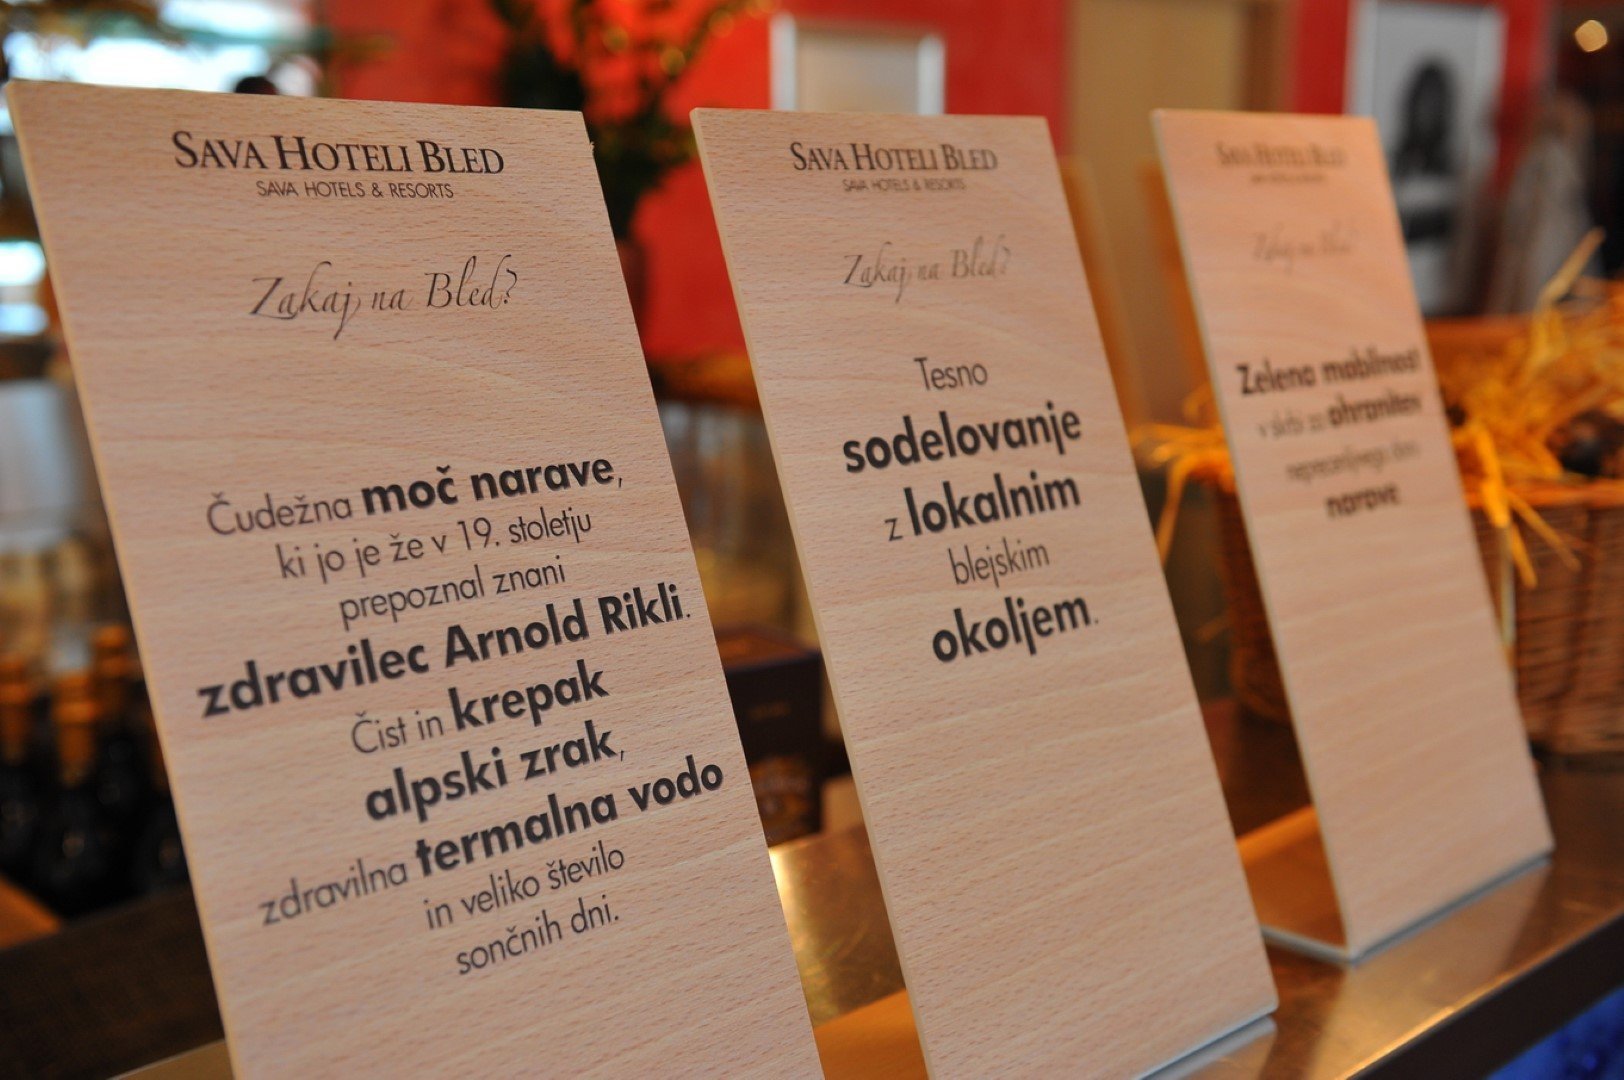 SAVA HOTELI BLED
SAVA HOTELS & RESORTS
Zakaj na Bled?
Čudežna moč narave,
ki jo je že v 19. stoletju
prepoznal znani
zdravilec Arnold Rikli.
Čist in krepak
alpski zrak,
zdravilna termalna vodo
in veliko število
sončnih dni.
SAVA HOTELI BLED
SAVA HOTELS & RESORTS
Zakaj na Bled?
Tesno
sodelovanje
z lokalnim
blejskim
okoljem.
SAVA HOTELI BLED
SAVA HOTELS & RESORTS
Zakaj na Bled?
Zelena mobilnost
v skrbi za ohranitev
neprecenljivega daru
narave